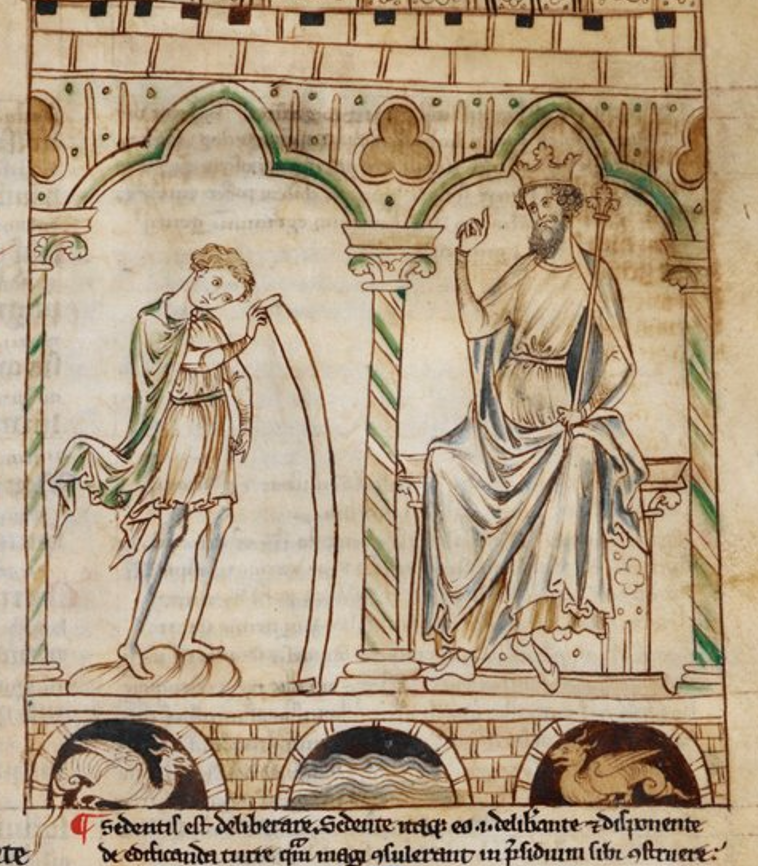 ¶ Sedentis est deliberare. Sedente itaq; eo .i. delib̾ante ⁊ disponente
de edificanda turre q̄m magi ꝯsulerant in p̄sidium sibi ꝯstruere: